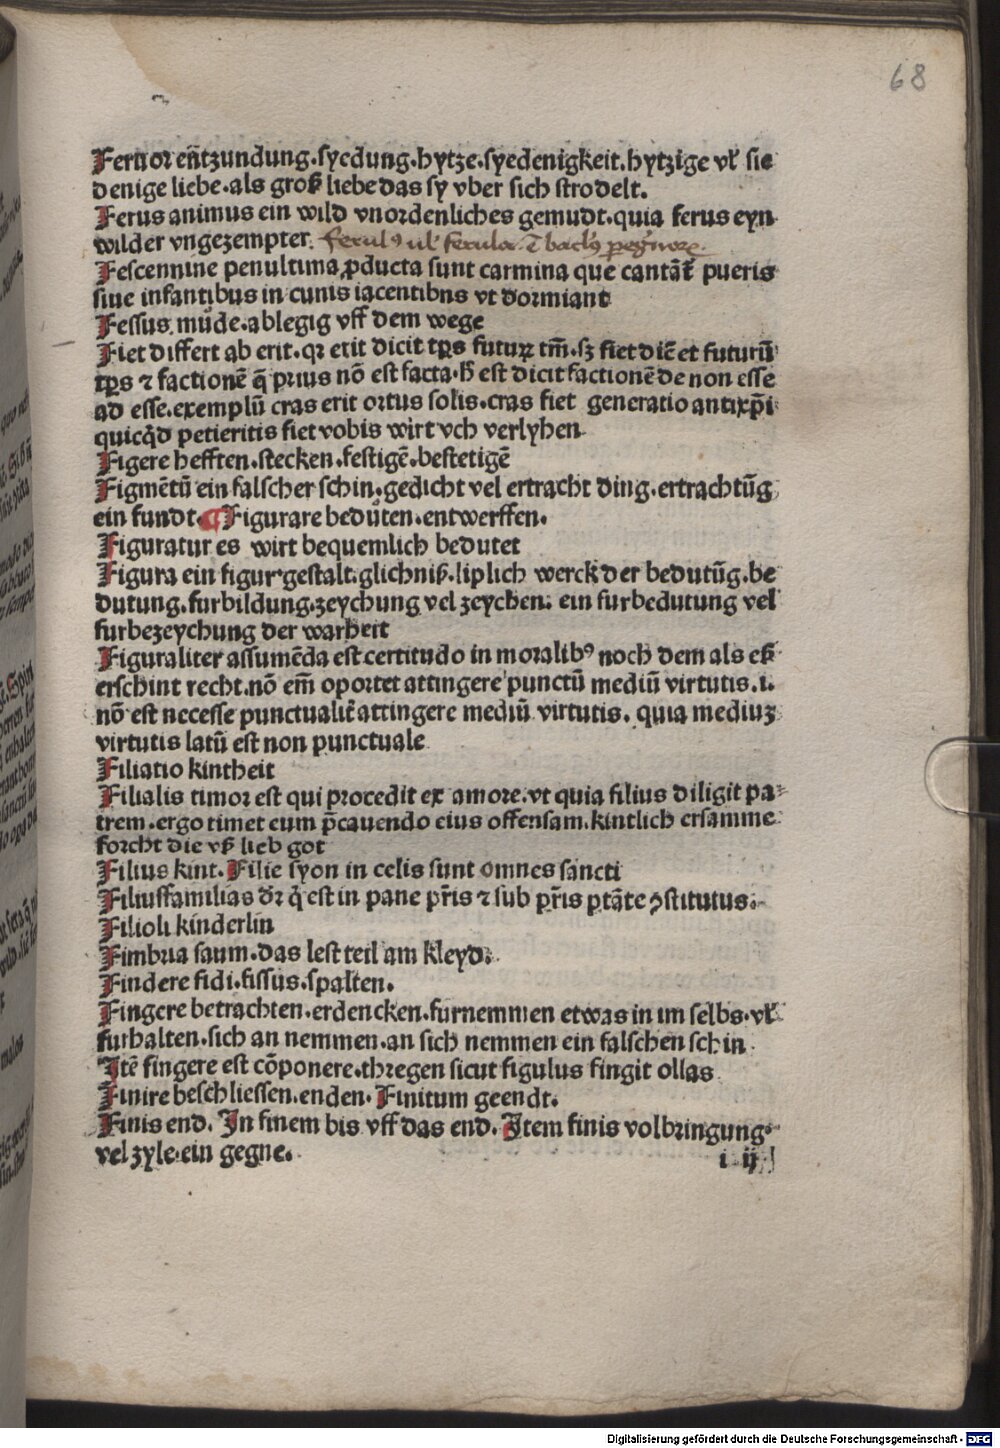 68
Feruor entzundung.syedung.hytze.syedenigkeit.hytzige vl' sie
denige liebe.als groß liebe das sy vber sich strodelt.
Ferus animus ein wild vnordenliches gemudt.quia ferus eyn
wilder vngezempter.
Fescennine penultima ꝓducta sunt carmina que cantāt̄ pueris
siue infantibus in cunis iacentibns vt dormiant
Fessus müde.ablegig vff dem wege
Fiet differt ab erit.qꝛ erit dicit tp̄s futuꝝ tm̄.sꝫ fiet diē et futurū
tp̄s ⁊ factionē q̄ prius nō est facta.h̄ est dicit factionē de non esse
ad esse.exemplū cras erit ortus solis.cras fiet generatio antixp̄i
quicq̇d petieritis fiet vobis wirt vch verlyhen
Figere hefften.stecken.festigē.bestetigē
Figmētū ein falscher schin.gedicht vel ertracht ding.ertrachtūg
ein fundt. ¶ Figurare bedüten.entwerffen.
Figuratur es wirt bequemlich bedutet
Figura ein figur gestalt.glichniß.liplich werck der bedutūg.be
dutung.furbildung.zeychung vel zeychen. ein furbedutung vel
furbezeychung der warheit
Figuraliter assumēda est certitudo in moralibꝰ noch dem als eß
erschint recht.nō em̄ oportet attingere punctū mediū virtutis.i.
nō est necesse punctualit̄ attingere mediū virtutis. quia mediuꝫ
virtutis latū est non punctuale
Filiatio kintheit
Filialis timor est qui procedit ex amore.vt quia filius diligit pa⸗
trem.ergo timet eum p̄cauendo eius offensam.kintlich ersamme
forcht die vß lieb got
Filius kint. Filie syon in celis sunt omnes sancti
Filiusfamilias dr̄ q̇ est in pane pr̄is ⁊ sub pr̄is ptāte ꝯstitutus.
Filioli kinderlin
Fimbria saum.das lest teil am kleyd.
Findere fidi.fissus.spalten.
Fingere betrachten.erdencken.furnemmen etwas in im selbs.vl'
furhalten.sich an nemmen.an sich nemmen ein falschen schin
Itē fingere est cōponere.thregen sicut figulus fingit ollas
Finire beschliessen.enden. Finitum geendt.
Finis end. In finem bis vff das end. Item finis volbringung
vel zyle.ein gegne.
i ij
Digitalisierung gefördert durch die Deutsche Forschungsgemeinschaft - DFG